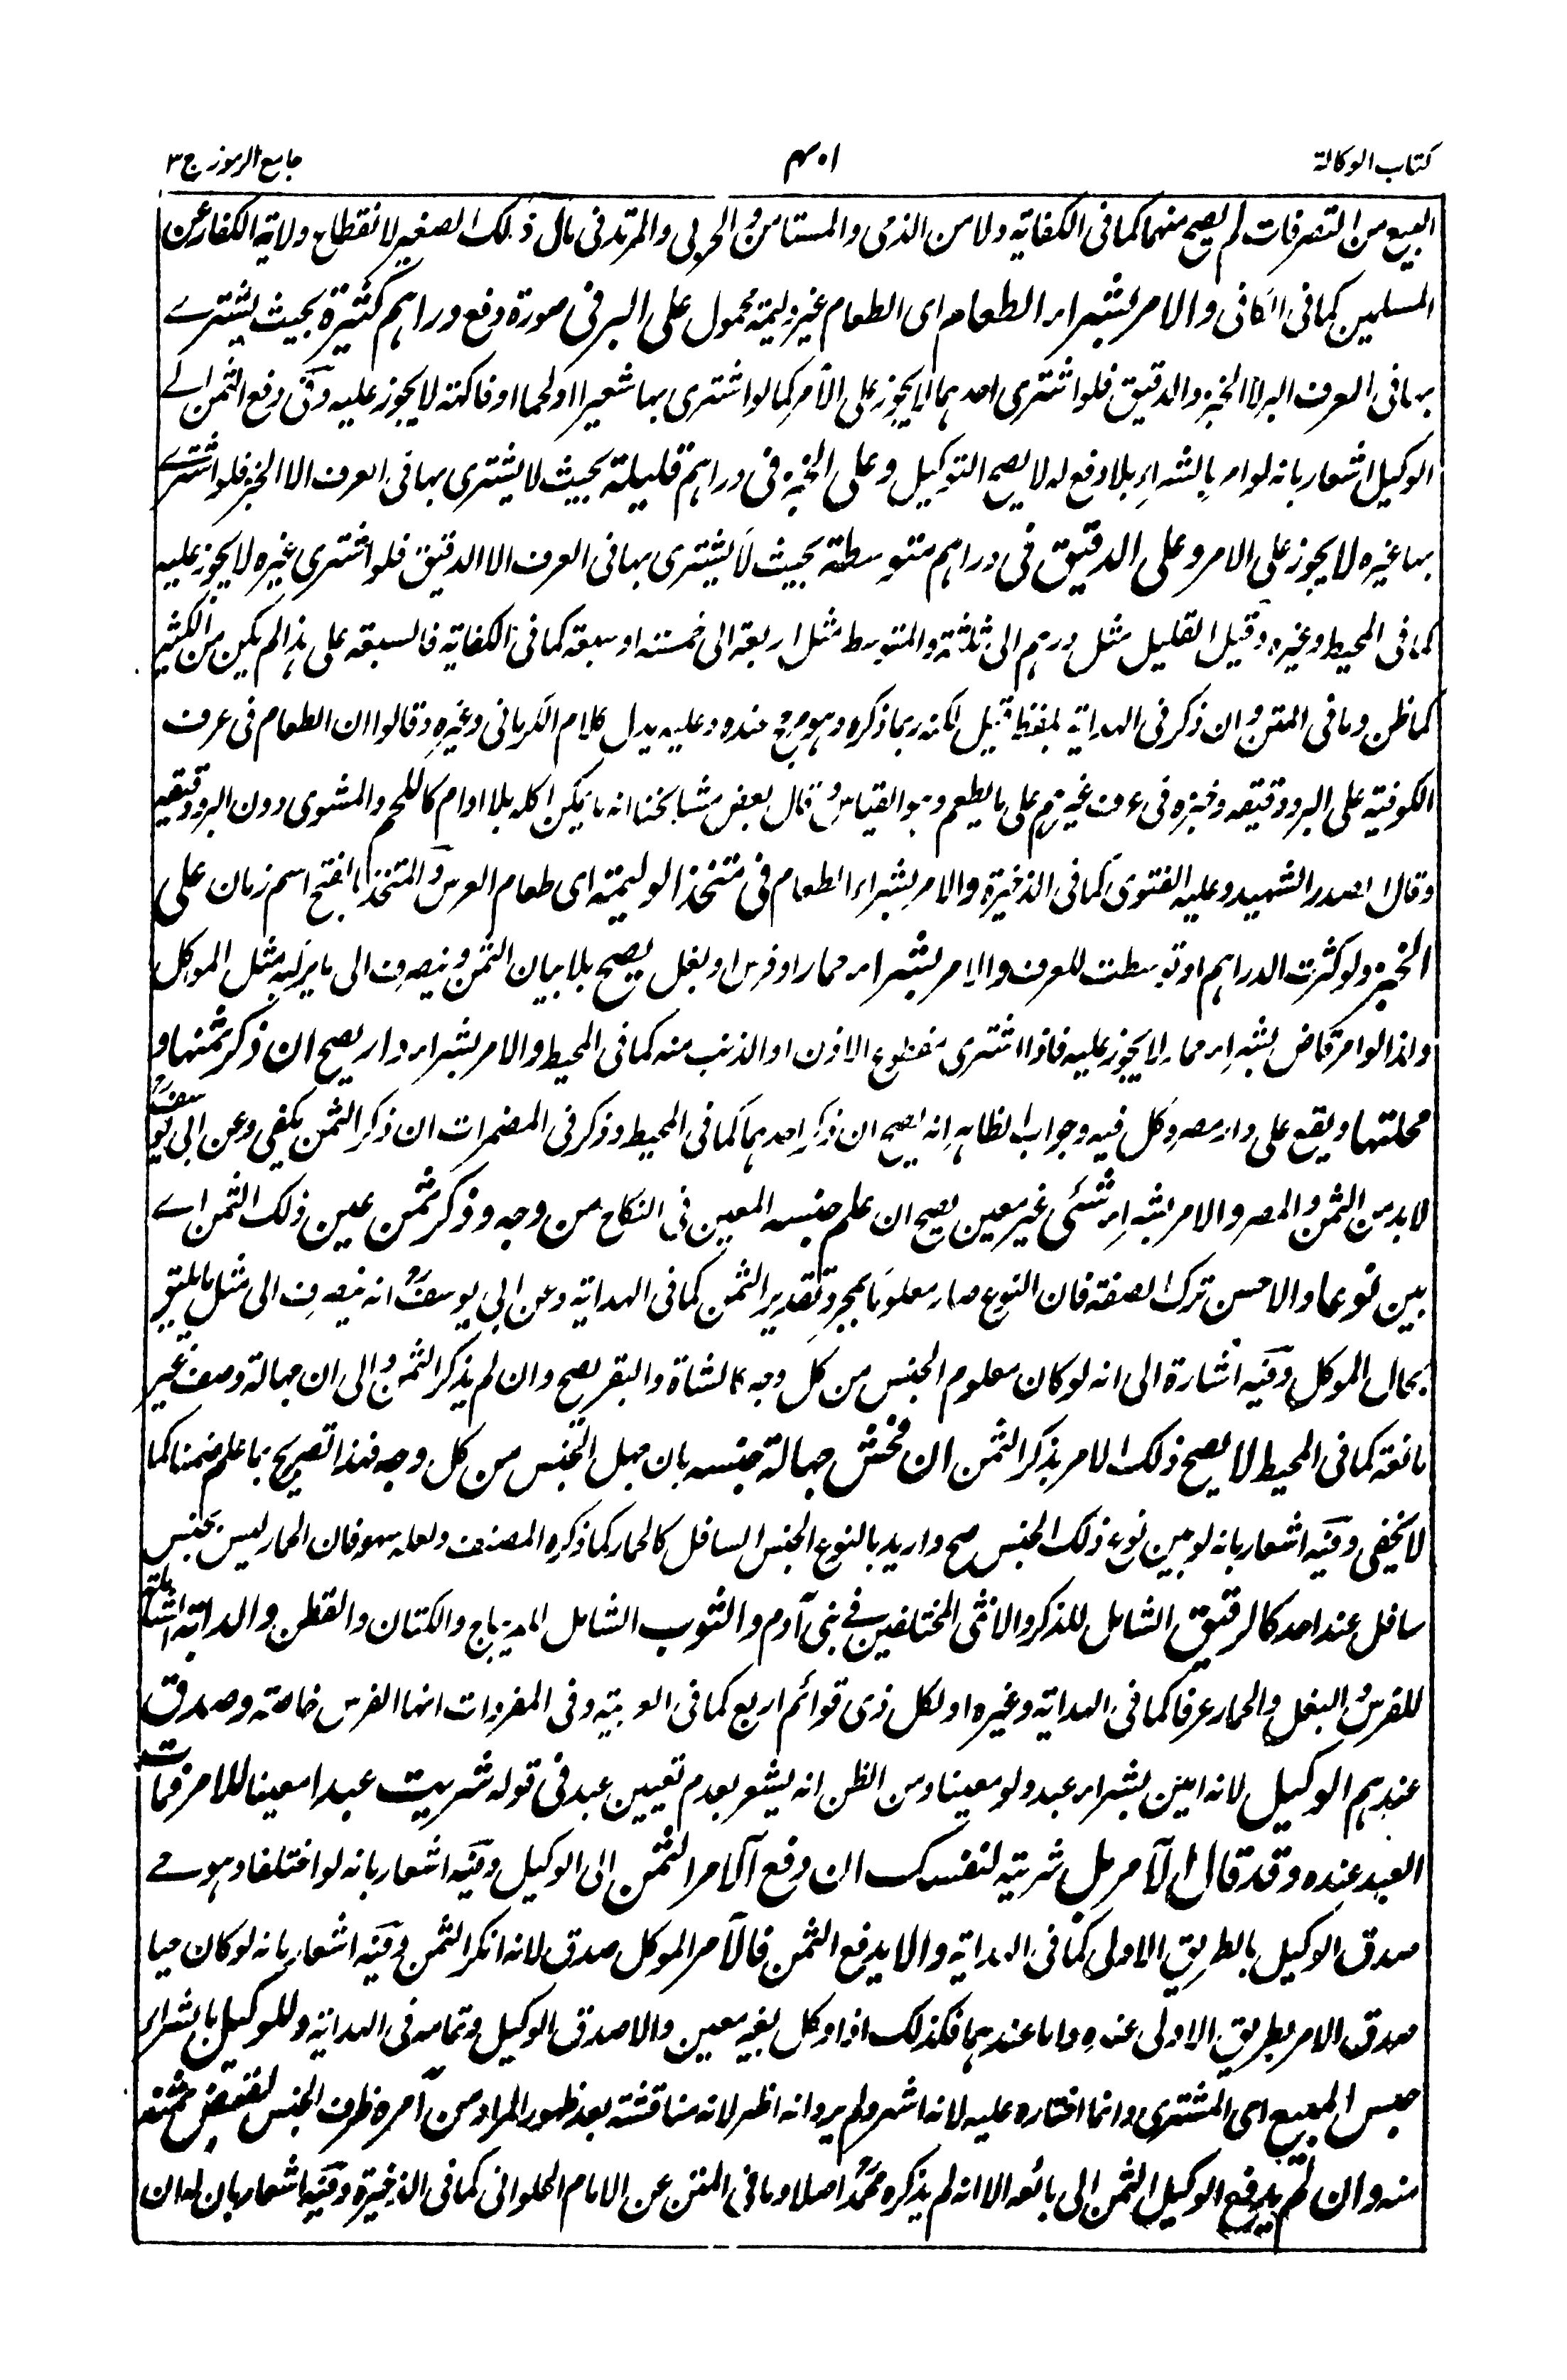 كتاب الوكالة
٤٠١
جامع الرموز ج ٣
البيع من التصرفات لم يصح منهما كما فى الكفاية ولا من الذمى والمستامن والحربى والمرتد فى مال ذلك الصغير لانقطاع ولاية الكفار عن
المسلمين كما فى الكافى والامر بشراء الطعام اى الطعام غير وليمة محمول على البر فى صورة دفع دراهم كثيرة بحيث يشترے
بها فى العرف البر لا الخبز والدقيق فلو اشترى احدهما لا يجوز على الآمر كما لو اشترى بها شعيرا او لحما او فاكهة لا يجوز عليه وفى دفع الثمن الے
الوكيل اشعار بانه لو امر بالشراء بلا دفع له لا يصح التوكيل وعلى الخبز فى دراهم قليلة بحيث لا يشترى بها فى العرف الا الخبز فلو اشترے
بها غيره لا يجوز على الامر وعلى الدقيق فى دراهم متوسطة بحيث لا يشترى بها فى العرف الا الدقيق فلو اشترى غيره لا يجوز عليه
كما فى المحيط وغيره وقيل القليل مثل درهم الى ثلثة والمتوسط مثل اربعة الى خمسة او سبعة كما فى الكفاية فالسبعة على هذا لم يكن من الكثير
كما ظن وما فى المتن وان ذكر فى الهداية بلفظ قيل لكنه ربما ذكره وهو مرجح عنده وعليه يدل كلام الكرمانى وغيره وقالوا ان الطعام فى عرف
الكوفية على البر ودقيقه وخبزه فى عرف غيرهم على ما يطعم وهو القياس وقال بعض مشايخنا انه ما يمكن اكله بلا ادام كاللحم والمشوى دون البر ودقيقه
وقال الصدر الشهيد وعليه الفتوى كما فى الذخيرة والامر بشراء الطعام فى متخذ الوليمة اى طعام العرس والمتخذ بالفتح اسم زمان على
الخبز ولو كثرت الدراهم او توسطت للعرف والامر بشراء حمار او فرس او بغل يصح بلا بيان الثمن وينصرف الى ما يركبه مثل الموكل
ولذا لو امر قاض بشراء حمار لا يجوز عليه فاذا اشترى مقطوع الاذن او الذنب منه كما فى المحيط والامر بشراء دار يصح ان ذكر ثمنها و
محلتها ويقع على دار مصر وكل فيه وجواب الظاهر انه يصح ان ذكر احدهما كما فى المحيط وذكر فى المضمرات ان ذكر الثمن يكفى وعن ابى يوسف
لا بد من الثمن والمصر والامر بشراء شئى غير معين يصح ان علم جنسه المعين فى النكاح من وجه وذكر ثمن عين ذلك الثمن اے
بين نوعا والاحسن ترك الصفة فان النوع صار معلوما بمجرد تقدير الثمن كما فى الهداية وعن ابى يوسف انه ينصرف الى مثل ما يليق
بحال الموكل وفيه اشارة الى انه لو كان معلوم الجنس من كل وجه كالشاة والبقر يصح وان لم يذكر الثمن والى ان جهالة وصف غير
مانعة كما فى المحيط لا يصح ذلك الامر بذكر الثمن ان فحش جهالة جنسه بان جهل الجنس من كل وجه فهذا تصريح بما علم ضمنا كما
لا يخفى وفيه اشعار بانه لو بين نوع ذلك الجنس صح واريد بالنوع الجنس السافل كالحمار كما ذكره المصنف ولعله سهو فان الحمار ليس بجنس
سافل عند احد كالرقيق الشامل للذكر والانثى المختلفين فے بنى آدم والثوب الشامل للديباج والكتان والقطن والدابة الشاملة
للفرس والبغل والحمار عرفا كما فى الهداية وغيره او لكل ذى قوائم اربع كما فى العربية وفى المفردات انها الفرس خاصة وصدق
عندهم الوكيل لانه امين بشراء عبد ولو معينا ومن الظن انه يشعر بعدم تعيين عبد فى قوله شريت عبدا معينا للامر فمات
العبد عنده وقد قال الآمر بل شريته لنفسك ان دفع الآمر الثمن الى الوكيل وفيه اشعار بانه لو اختلفا وهو حے
صدق الوكيل بالطريق الاولى كما فى الهداية والا يدفع الثمن فالآمر الموكل صدق لانه انكر الثمن وفيه اشعار بانه لو كان حيا
صدق الامر بطريق الاولى عنده واما عندهما فكذلك اذا وكل بغير معين والا صدق الوكيل وتمامه فى الهداية وللوكيل بالشراء
حبس المبيع اى المشترى وانما اختاره عليه لانه اشهر ولم يرد انه اظهر لانه مناقشة بعد ظهور المراد من آمره ظرف الحبس لقبض ثمنه
منه وان لم يدفع الوكيل الثمن الى بائعه الا انه لم يذكره محمد اصلا وما فى المتن عن الامام الحلوانى كما فى الذخيرة وفيه اشعار بان له ان